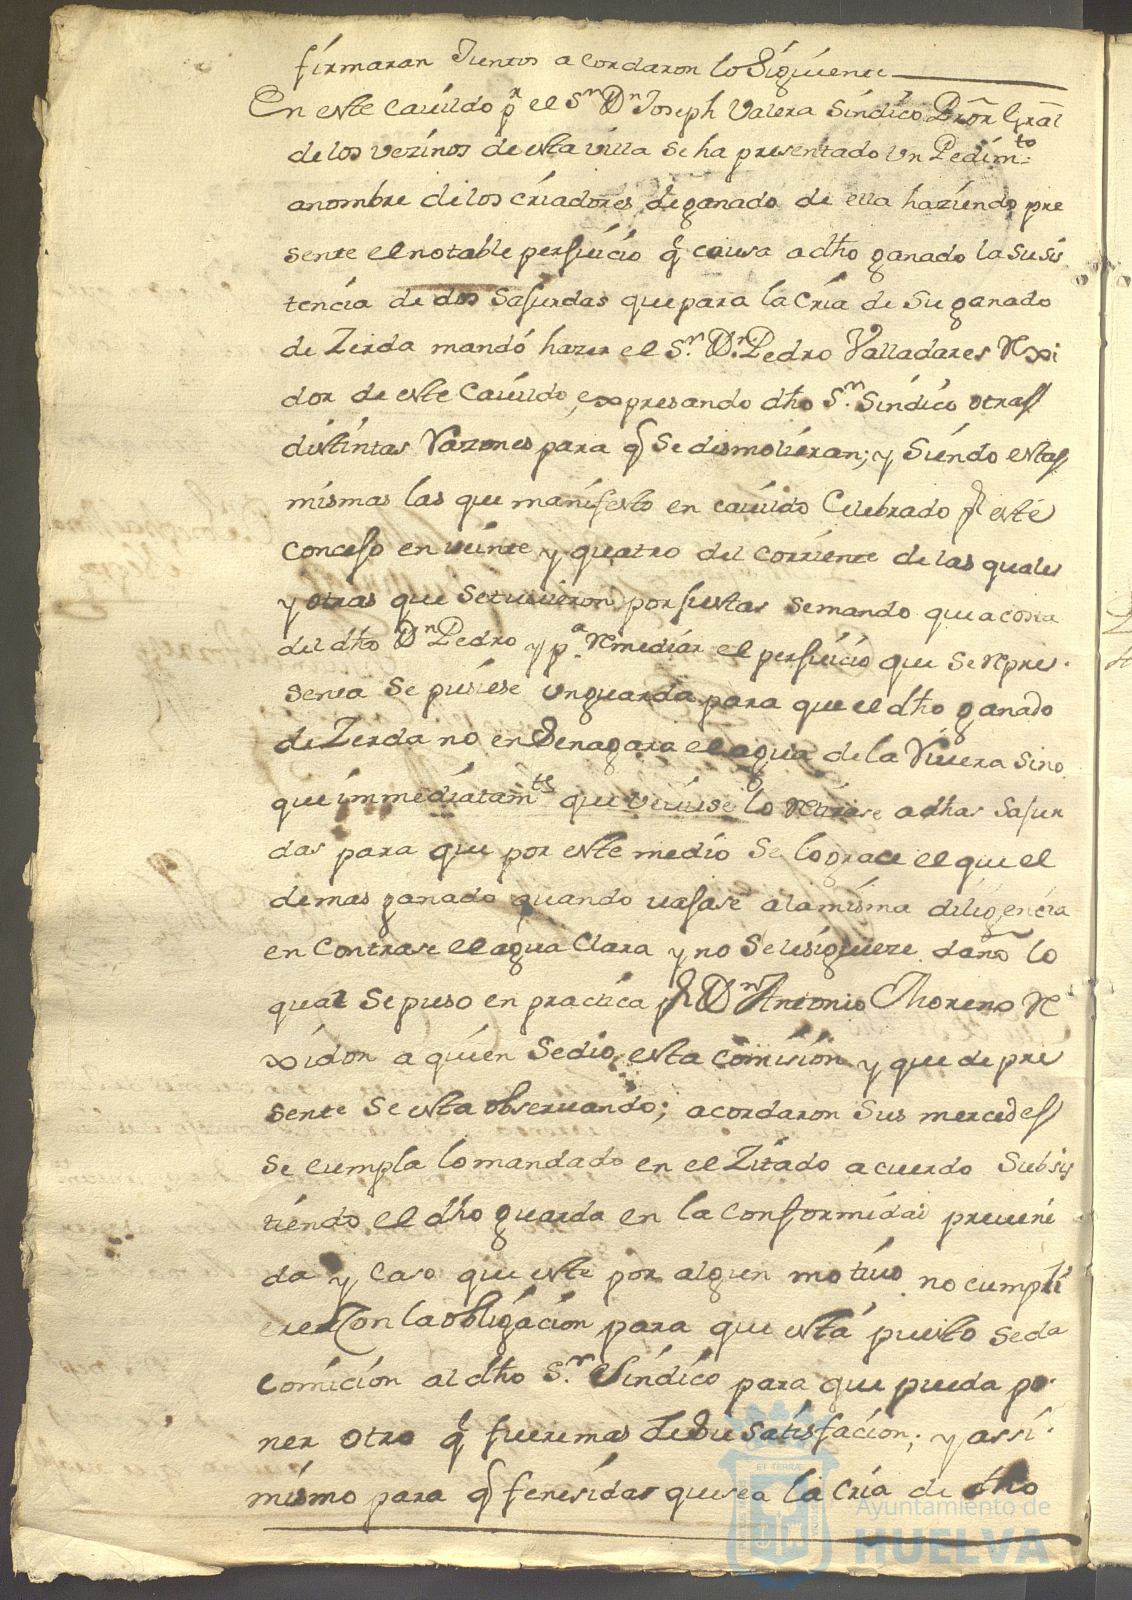 firmaran Juntos acordaron lo Siguiente
En este Cavildo pr. el Sn. Dn. Joseph Valera Sindico Prõr Grãl
de los vezinos de esta villa se ha presentado un Pedimto.
anombre de los criadores de ganado de ella haziendo pre
sente el notable perjuicio q causa a dho ganado la susis
tencia de dos Sajurdas que para la cria de su ganado
de Zerda mandó hazer el Sr. Dn. Pedro Valladares Rexi
dor de este Cavildo, expresando dho Sr. Sindico otras
distintas razones para q Se dismolieran; y Siendo estas
mismas las que manifesto en cavildo Celebrado pr este
Concejo en veinte y quatro del corriente de las quales
y otras que Setuvieron por justas Semando que a costa
del dho Dn Pedro y pa. Remediar el perjuicio que Se Repre
senta Se pusiese un guarda para que el dho ganado
de Zerda no enSenagara el agua de la Rivera sino
que immediatamte que veviese lo Retirase a dhas Sajur
das para que por este medio Se lograce el que el
demas ganado quando vajase ala misma diligencia
encontrase el agua Clara y no Selesiguieze daño lo
qual Sepuso en practica pr Dn Antonio Moreno Re
xidor a quien Sedio esta comisión y que de pre
sente Se esta observando; acordaron Sus mercedes
Se cumpla lo mandado en el Zitado acuerdo Subsis
tiendo el dho guarda en la conformidad preveni
da y caso que este por algun motivo no cumpli
ere Con la obligacion para que está puesto Seda
Comición al dho Sr. Sindico para que pueda po
ner otro q fuere mas de Su satisfacion; y assi
mismo para q fenesidas que sea la cria de dho
Ayuntamiento de
HUELVA